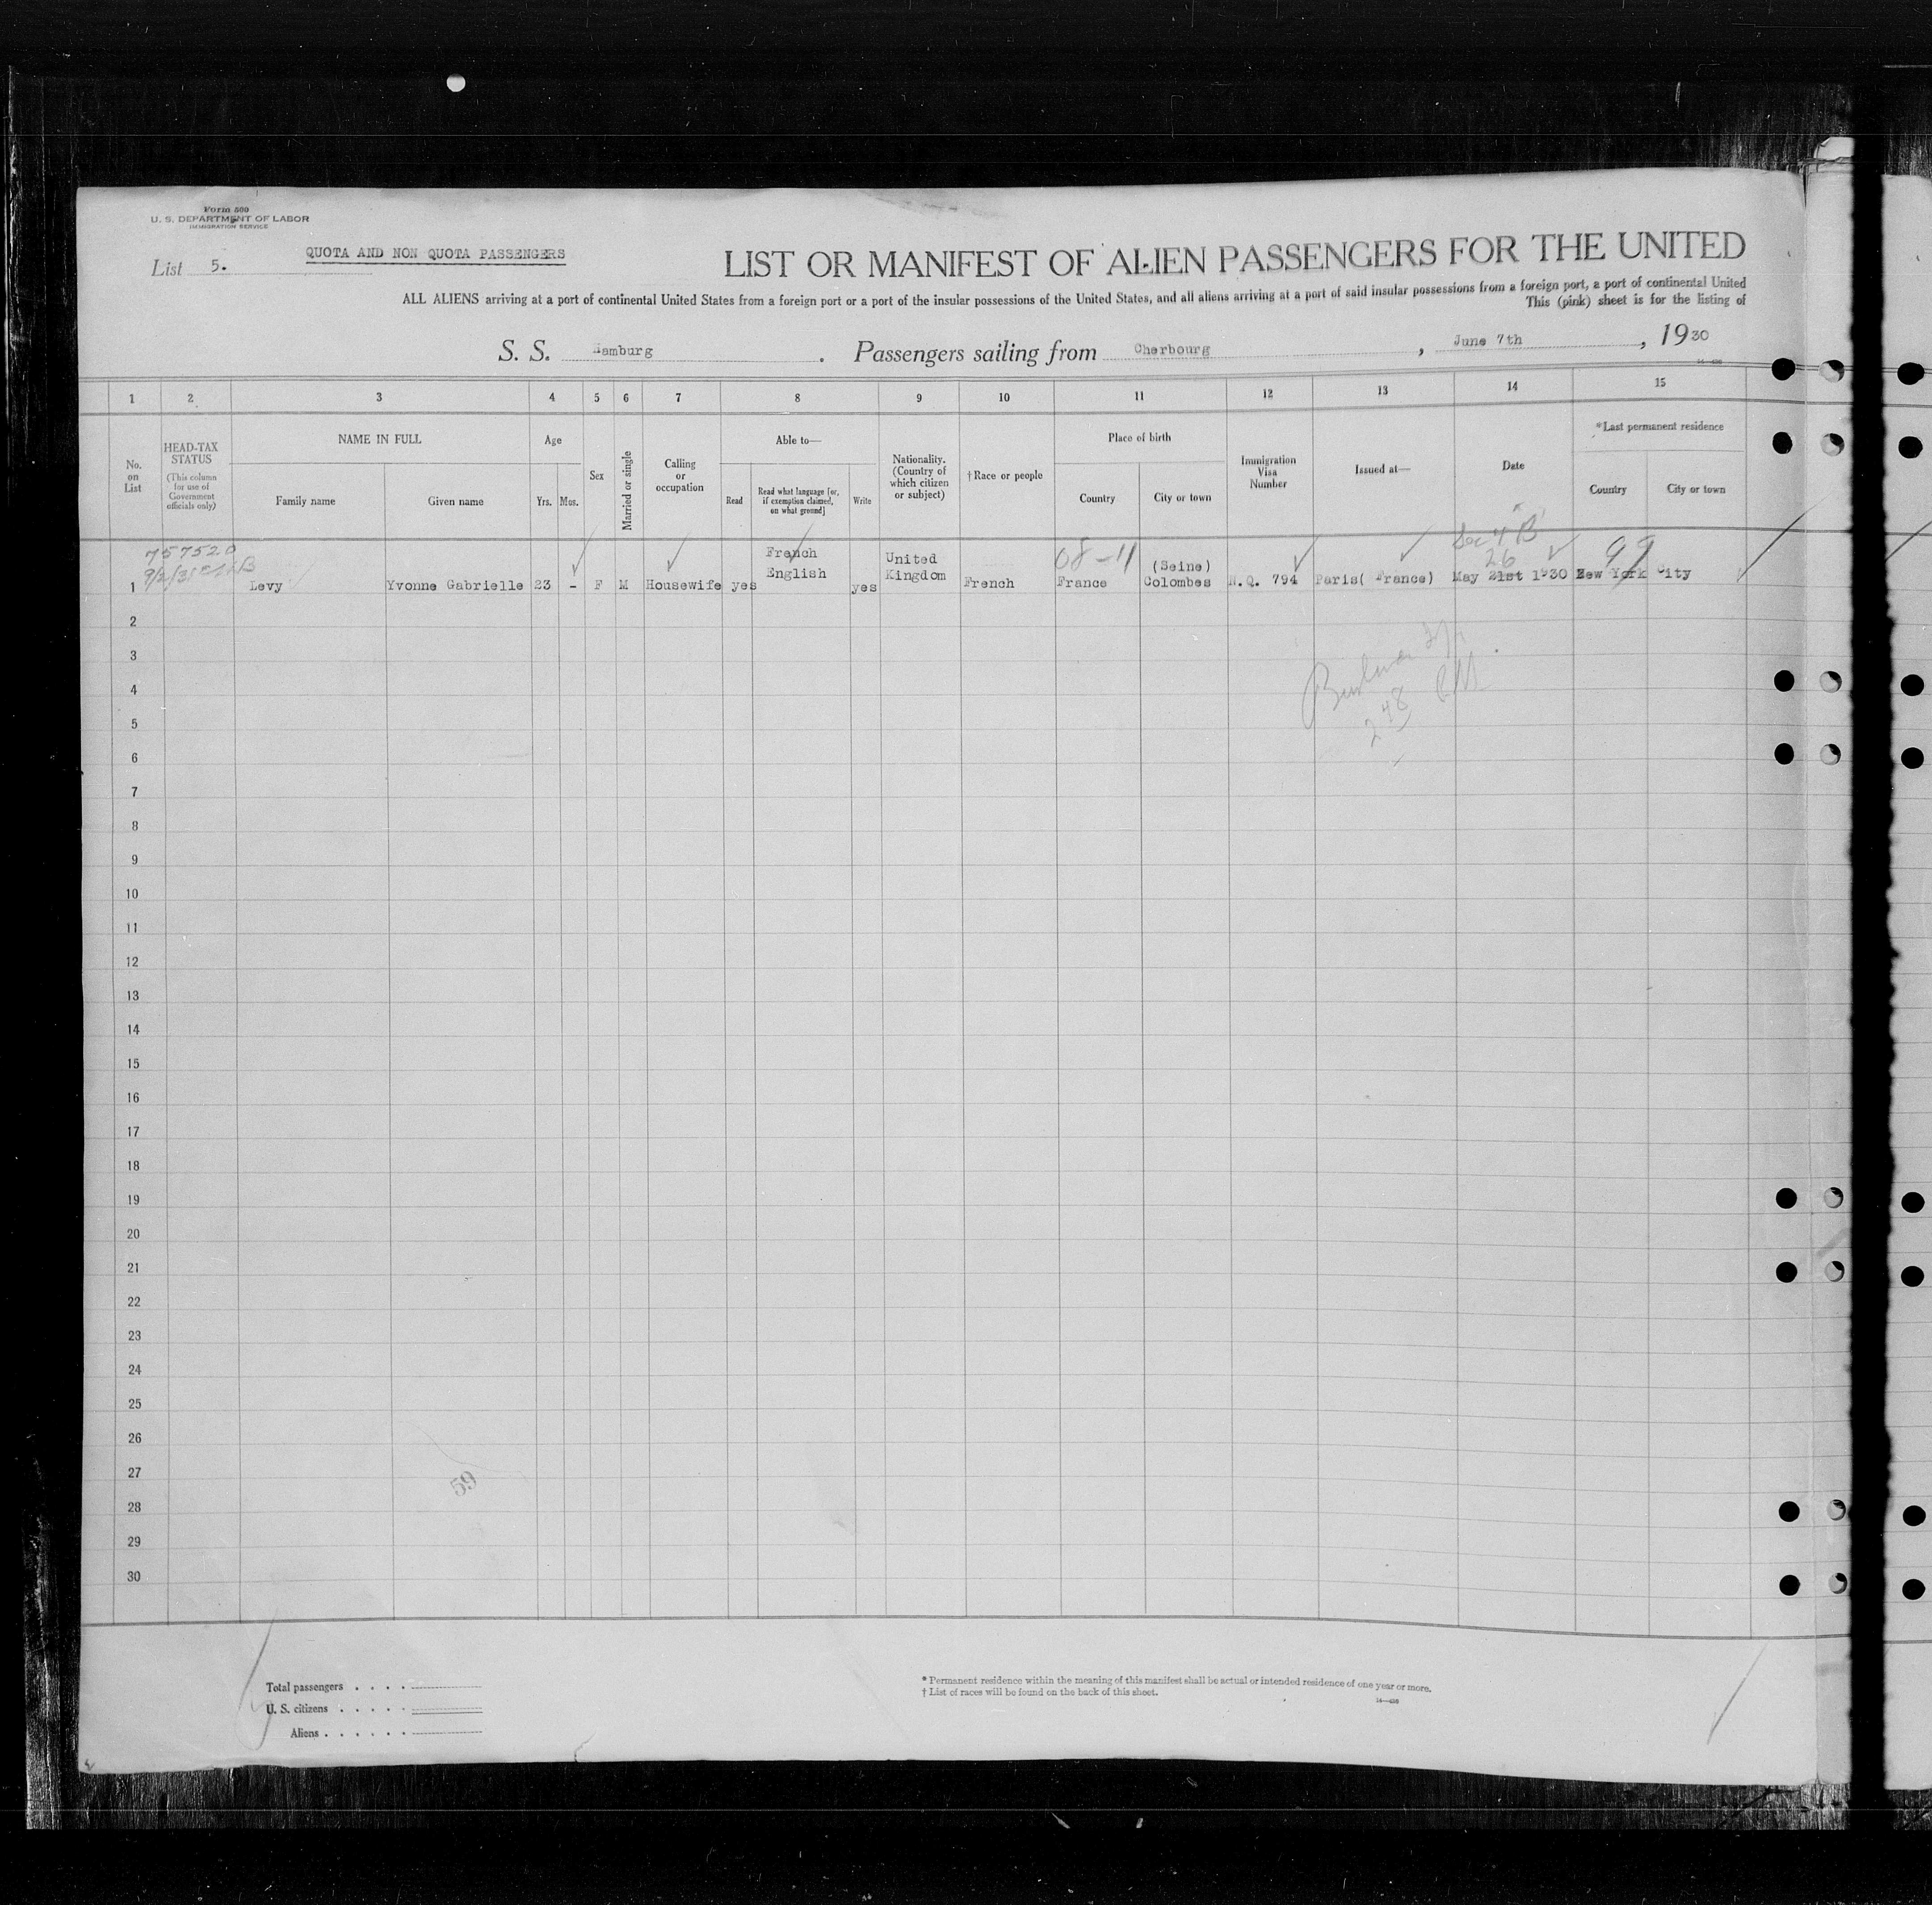 Form 500
U. S. DEPARTMENT OF LABOR
IMMIGRATION SERVICE
List 5.
QUOTA AND NON QUOTA PASSENGERS
LIST OR MANIFEST OF ALIEN PASSENGERS FOR THE UNITED
ALL ALIENS arriving at a port of continental United States from a foreign port or a port of the insular possessions of the United States, and all aliens arriving at a port of said insular possessions from a foreign port, a port of continental United
This (pink) sheet is for the listing of
S. S. Hamburg . Passengers sailing from Cherbourg , June 7th , 1930
1 2 3 4 5 6 7 8 9 10 11 12 13 14 15
No. on List
HEAD-TAX STATUS
(This column for use of Government officials only)
NAME IN FULL
Family name
Given name
Age
Yrs.
Mos.
Sex
Married or single
Calling or occupation
Able to—
Read
Read what language [or, if exemption claimed, on what ground]
Write
Nationality. (Country of which citizen or subject)
†Race or people
Place of birth
Country
City or town
Immigration Visa Number
Issued at—
Date
*Last permanent residence
Country
City or town
757520
08-11
Sec 4 B
26
99
French
English
United
Kingdom
(Seine)
1 Levy Yvonne Gabrielle 23 - F M Housewife yes yes French France Colombes N.Q. 794 Paris( France) May 21st 1930 New York City
2
3
4
5
6
7
8
9
10
11
12
13
14
15
16
17
18
19
20
21
22
23
24
25
26
27
28
29
30
248
59
Total passengers . . . .
U. S. citizens . . . . .
Aliens . . . . . .
* Permanent residence within the meaning of this manifest shall be actual or intended residence of one year or more.
† List of races will be found on the back of this sheet.